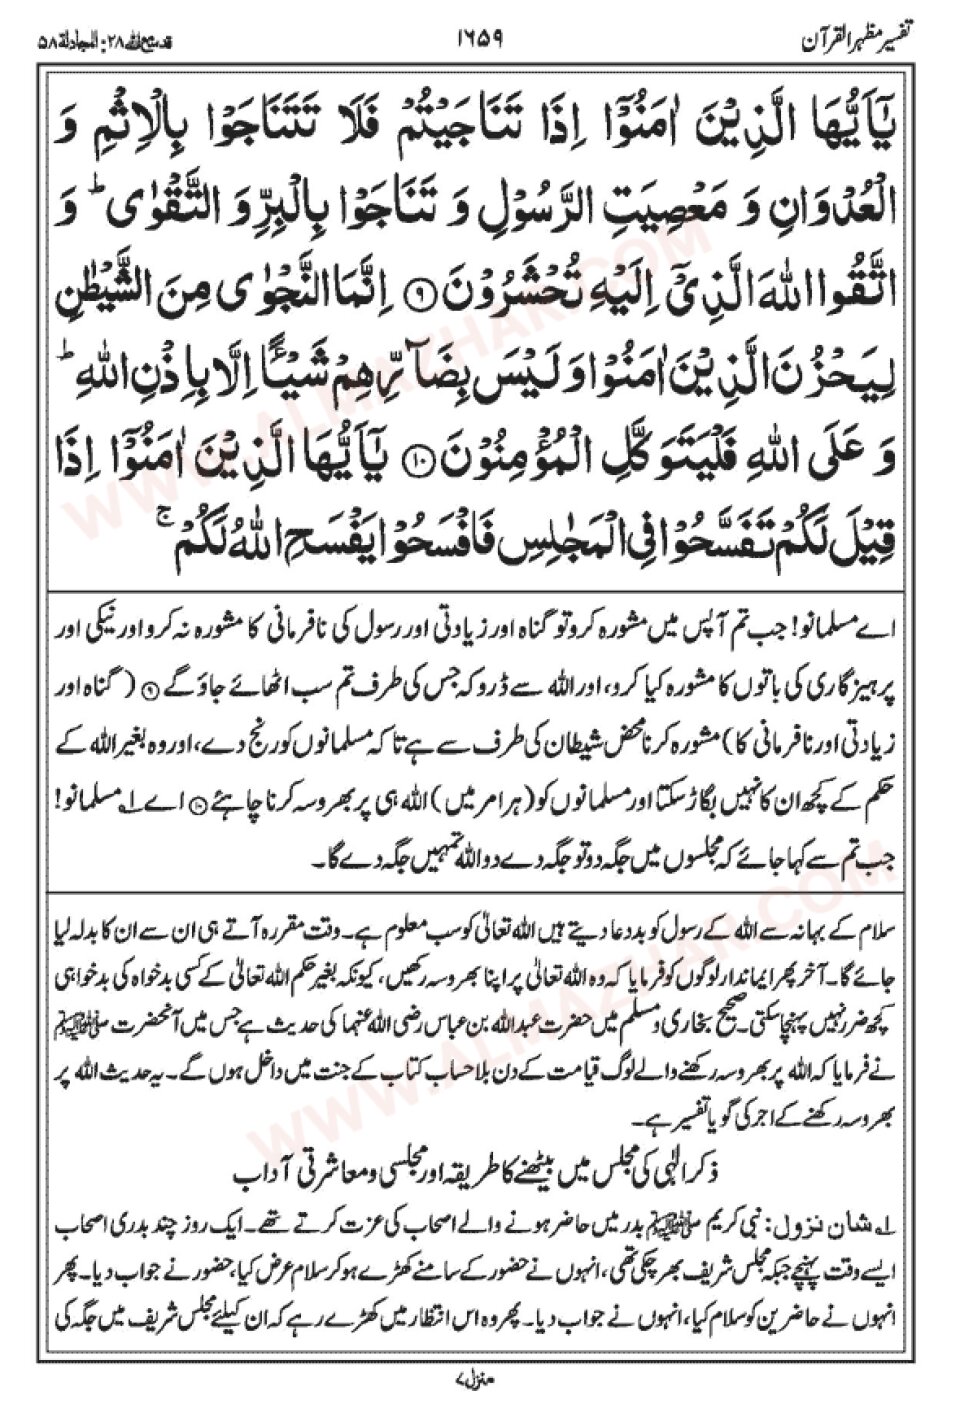 تفسیر مظہر القرآن ۱۶۵۹ قد سمع اللہ ۲۸: المجادلۃ ۵۸
یٰۤاَیُّهَا الَّذِیْنَ اٰمَنُوْۤا اِذَا تَنَاجَیْتُمْ فَلَا تَتَنَاجَوْا بِالْاِثْمِ وَ
الْعُدْوَانِ وَ مَعْصِیَتِ الرَّسُوْلِ وَ تَنَاجَوْا بِالْبِرِّ وَ التَّقْوٰىؕ وَ
اتَّقُوا اللّٰهَ الَّذِیْۤ اِلَیْهِ تُحْشَرُوْنَ ۹ اِنَّمَا النَّجْوٰى مِنَ الشَّیْطٰنِ
لِیَحْزُنَ الَّذِیْنَ اٰمَنُوْا وَ لَیْسَ بِضَآرِّهِمْ شَیْـًٔا اِلَّا بِاِذْنِ اللّٰهِؕ
وَ عَلَى اللّٰهِ فَلْیَتَوَكَّلِ الْمُؤْمِنُوْنَ ۱۰ یٰۤاَیُّهَا الَّذِیْنَ اٰمَنُوْۤا اِذَا
قِیْلَ لَكُمْ تَفَسَّحُوْا فِی الْمَجٰلِسِ فَافْسَحُوْا یَفْسَحِ اللّٰهُ لَكُمْۚ
اے مسلمانو! جب تم آپس میں مشورہ کرو تو گناہ اور زیادتی اور رسول کی نافرمانی کا مشورہ نہ کرو اور نیکی اور
پرہیزگاری کی باتوں کا مشورہ کیا کرو، اور اللہ سے ڈرو کہ جس کی طرف تم سب اٹھائے جاؤ گے ۹ (گناہ اور
زیادتی اور نافرمانی کا) مشورہ کرنا محض شیطان کی طرف سے ہے تاکہ مسلمانوں کو رنج دے، اور وہ بغیر اللہ کے
حکم کے کچھ ان کا نہیں بگاڑ سکتا اور مسلمانوں کو (ہر امر میں) اللہ ہی پر بھروسہ کرنا چاہئے ۱۰ اے ۱؎ مسلمانو!
جب تم سے کہا جائے کہ مجلسوں میں جگہ دو تو جگہ دے دو اللہ تمہیں جگہ دے گا۔
سلام کے بہانہ سے اللہ کے رسول کو بد دعا دیتے ہیں اللہ تعالیٰ کو سب معلوم ہے۔ وقت مقررہ آتے ہی ان سے ان کا بدلہ لیا
جائے گا۔ آخر پھر ایماندار لوگوں کو فرمایا کہ وہ اللہ تعالیٰ پر اپنا بھروسہ رکھیں، کیونکہ بغیر حکم اللہ تعالیٰ کے کسی بدخواہ کی بدخواہی
کچھ ضرر نہیں پہنچا سکتی۔ صحیح بخاری و مسلم میں حضرت عبداللہ بن عباس رضی اللہ عنہما کی حدیث ہے جس میں آنحضرت ﷺ
نے فرمایا کہ اللہ پر بھروسہ رکھنے والے لوگ قیامت کے دن بلا حساب کتاب کے جنت میں داخل ہوں گے۔ یہ حدیث اللہ پر
بھروسہ رکھنے کے اجر کی گویا تفسیر ہے۔
ذکر الٰہی کی مجلس میں بیٹھنے کا طریقہ اور مجلسی و معاشرتی آداب
۱؎ شان نزول: نبی کریم ﷺ بدر میں حاضر ہونے والے اصحاب کی عزت کرتے تھے۔ ایک روز چند بدری اصحاب
ایسے وقت پہنچے جبکہ مجلس شریف بھر چکی تھی، انہوں نے حضور کے سامنے کھڑے ہو کر سلام عرض کیا، حضور نے جواب دیا۔ پھر
انہوں نے حاضرین کو سلام کیا، انہوں نے جواب دیا۔ پھر وہ اس انتظار میں کھڑے رہے کہ ان کیلئے مجلس شریف میں جگہ کی
منزل ۷
WWW.ALMAZHAR.COM
WWW.ALMAZHAR.COM